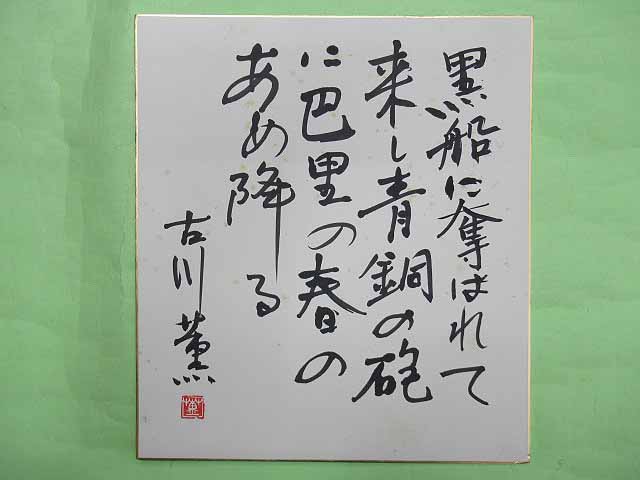 黒船に奪はれて
来し青銅の砲
に巴里の春の
あめ降る
古川薫
薫